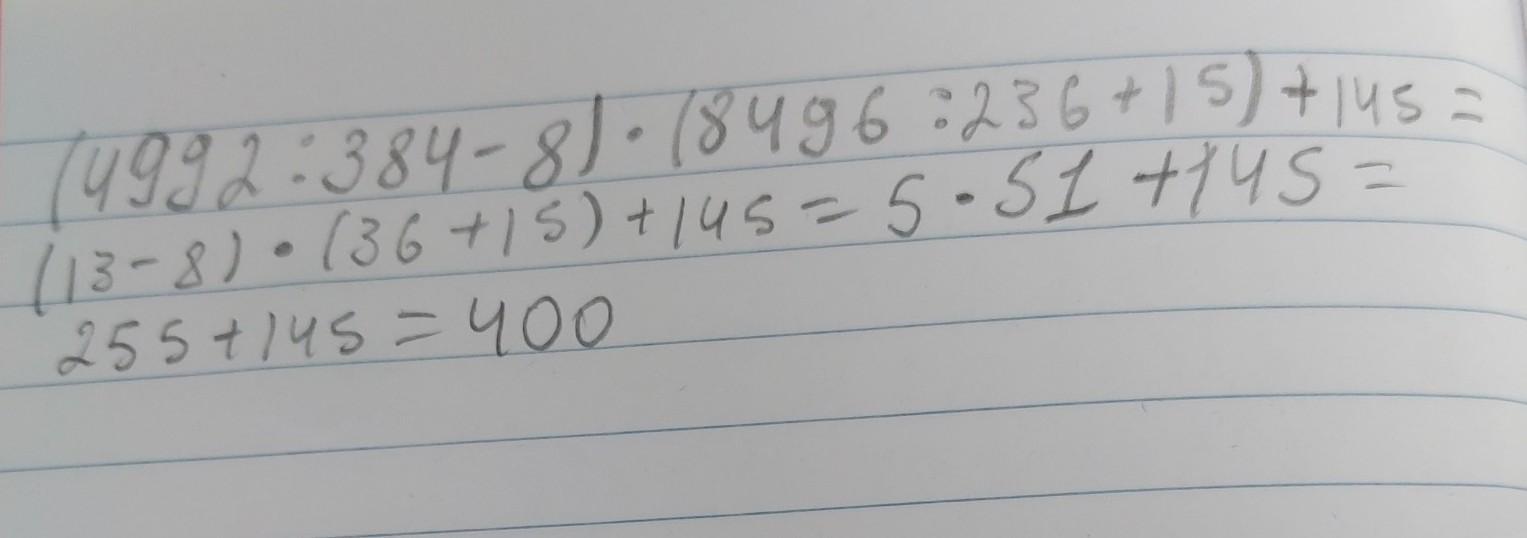 (4992:384-8)·(8496:236+15)+145=
(13-8)·(36+15)+145=5·51+145=
255+145=400